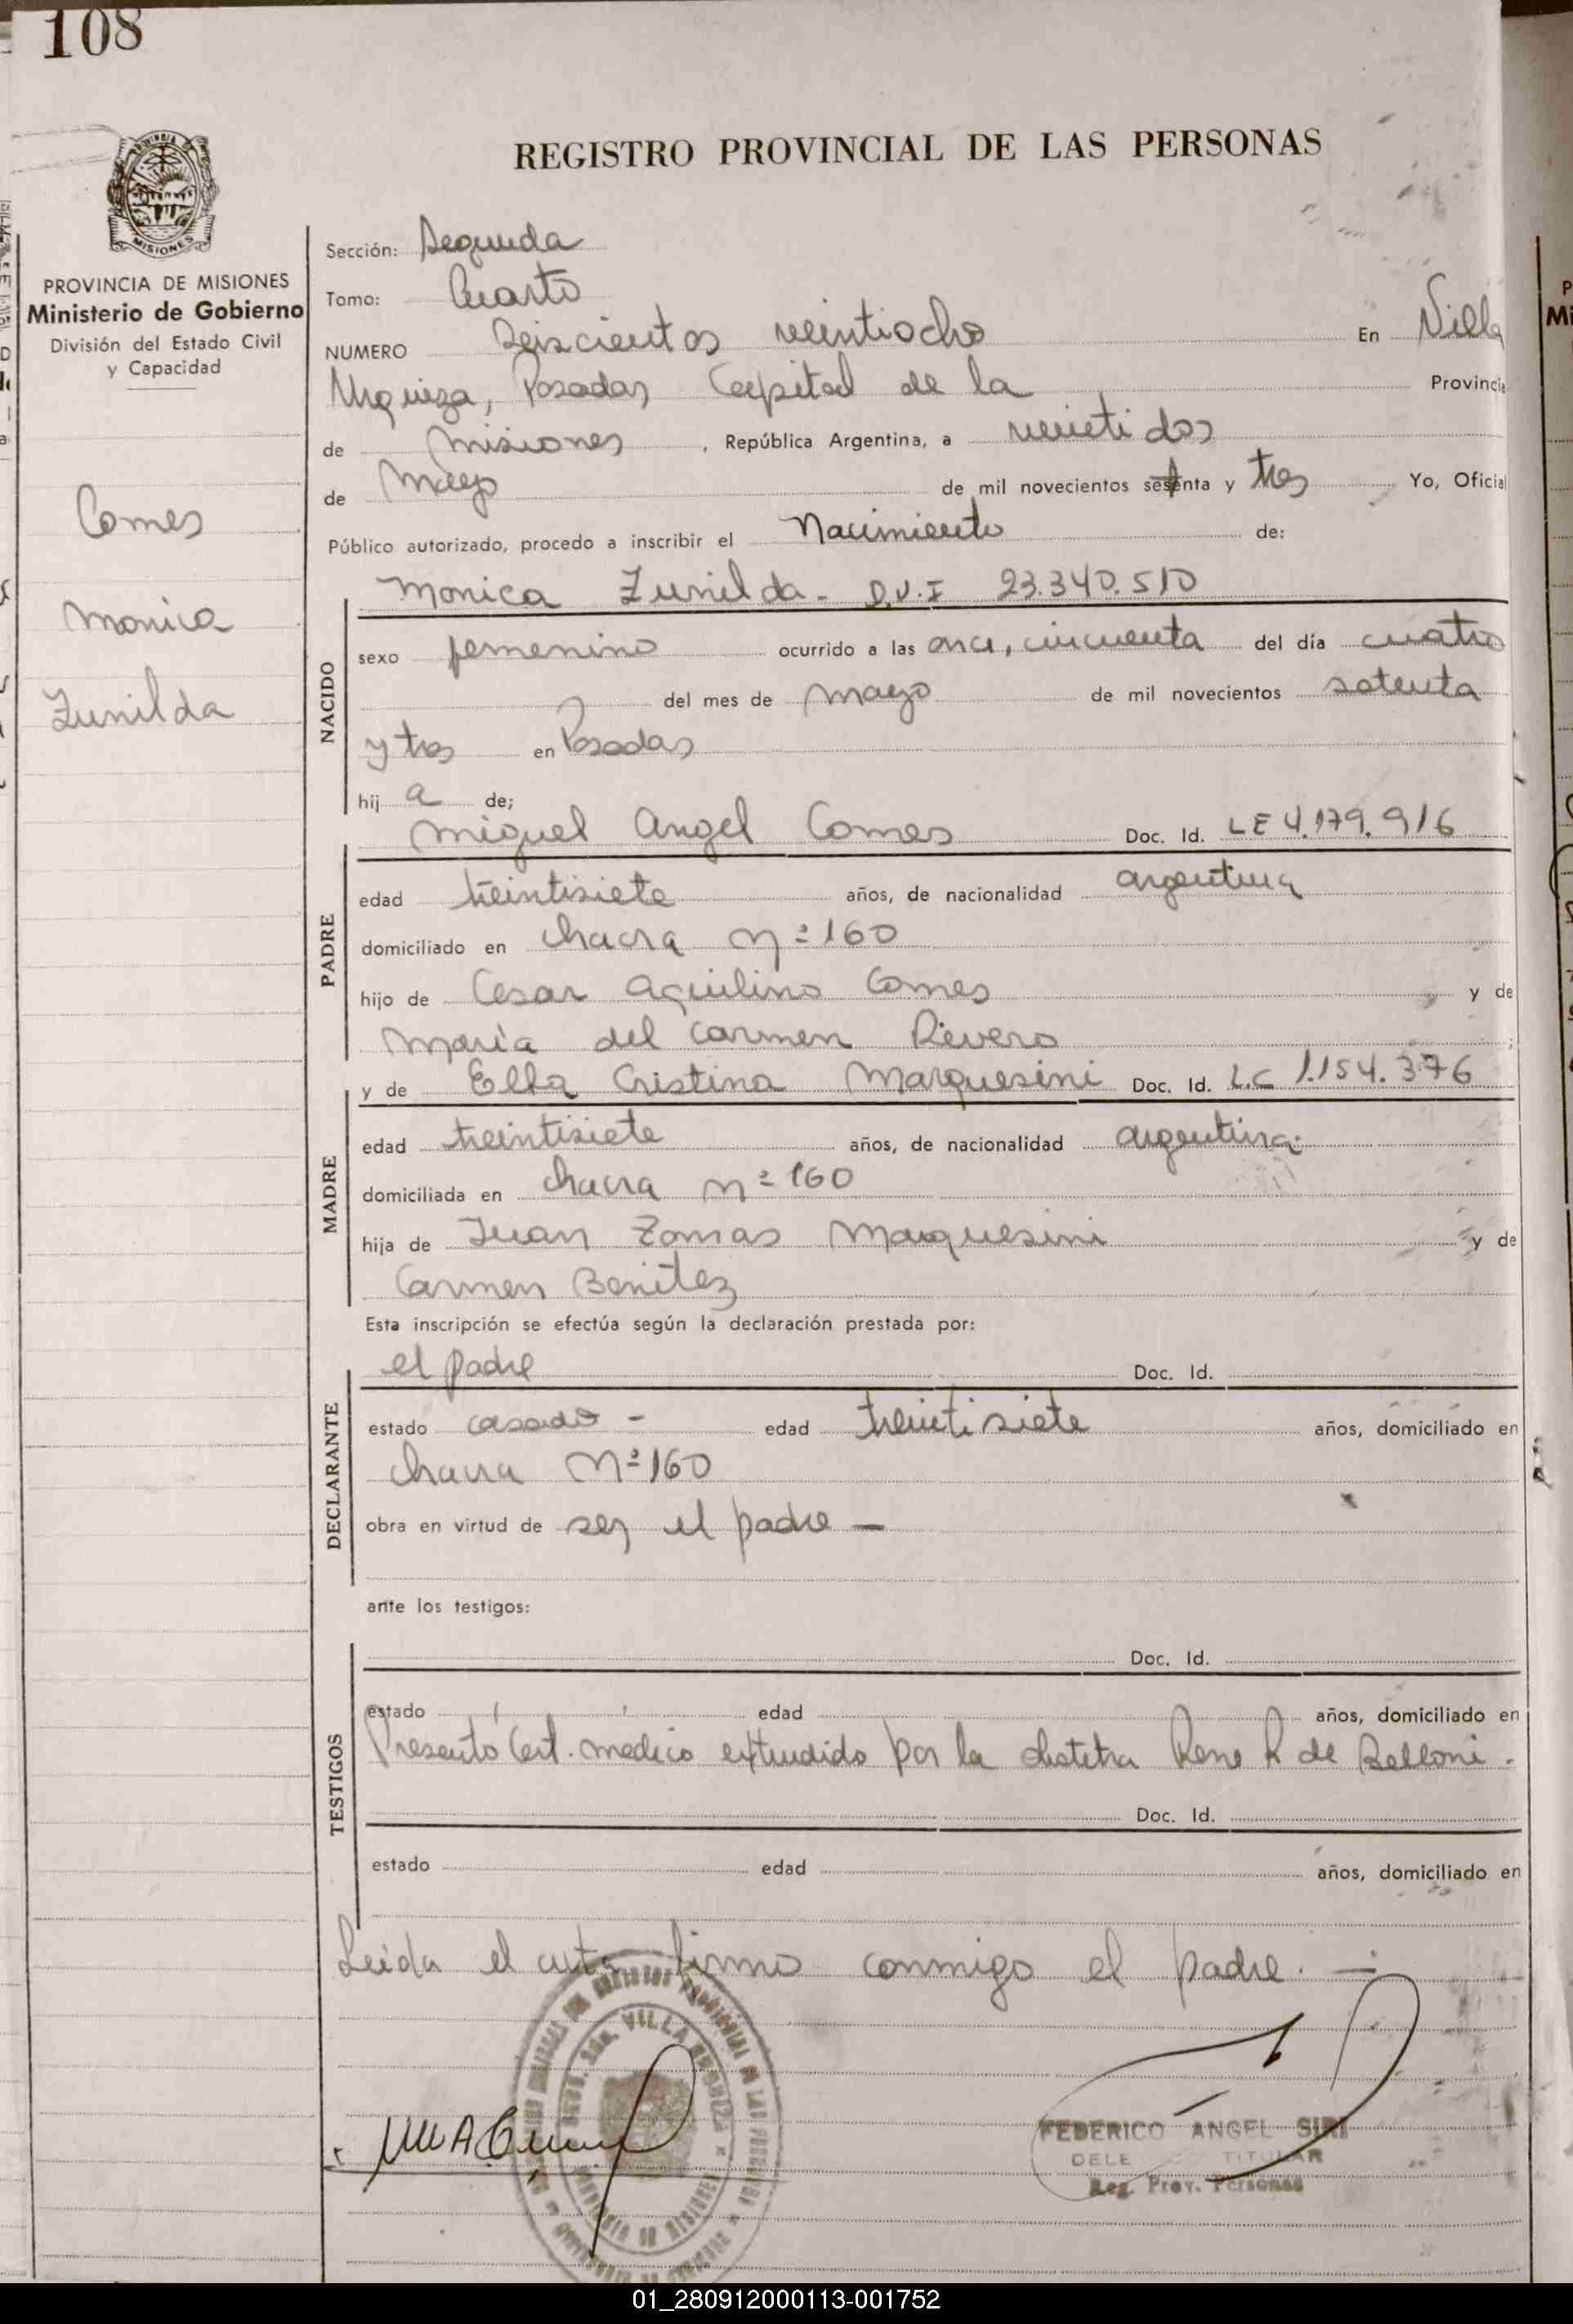 108
REGISTRO PROVINCIAL DE LAS PERSONAS
MISIONES
PROVINCIA DE MISIONES
Ministerio de Gobierno
División del Estado Civil
y Capacidad
Comes
Monica
Zunilda
Sección: Segunda
Tomo: Cuarto
NUMERO Seiscientos veintiocho En Villa
Urquiza, Posadas Capital de la Provincia
de Misiones, República Argentina, a veinti dos
de Mayo de mil novecientos setenta y tres Yo, Oficial
Público autorizado, procedo a inscribir el Nacimiento de:
Monica Zunilda - D.N.I 23.340.510
NACIDO
sexo femenino ocurrido a las once, cincuenta del día cuatro
del mes de Mayo de mil novecientos setenta
y tres en Posadas
hij a de;
Miguel Angel Comes Doc. Id. LE 4.179.916
PADRE
edad treintisiete años, de nacionalidad argentina
domiciliado en chacra nº 160
hijo de Cesar Aquilino Comes y de
María del Carmen Rivero
y de Elba Cristina Marquesini Doc. Id. L.C 1.154.376
MADRE
edad treintisiete años, de nacionalidad argentina
domiciliada en chacra nº 160
hija de Juan Tomas Marquesini y de
Carmen Benitez
Esta inscripción se efectúa según la declaración prestada por:
el padre Doc. Id.
DECLARANTE
estado casado - edad treinti siete años, domiciliado en
chacra Nº 160
obra en virtud de ser el padre —
ante los testigos:
Doc. Id.
TESTIGOS
estado edad años, domiciliado en
Presentó Cert. medico extendido por la obstetra Rene R de Belloni.
Doc. Id.
estado edad años, domiciliado en
Leida el acta firma conmigo el padre. —
VILLA URQUIZA
FEDERICO ANGEL SIRI
DELE TITULAR
Reg. Prov. Personas
01_280912000113-001752